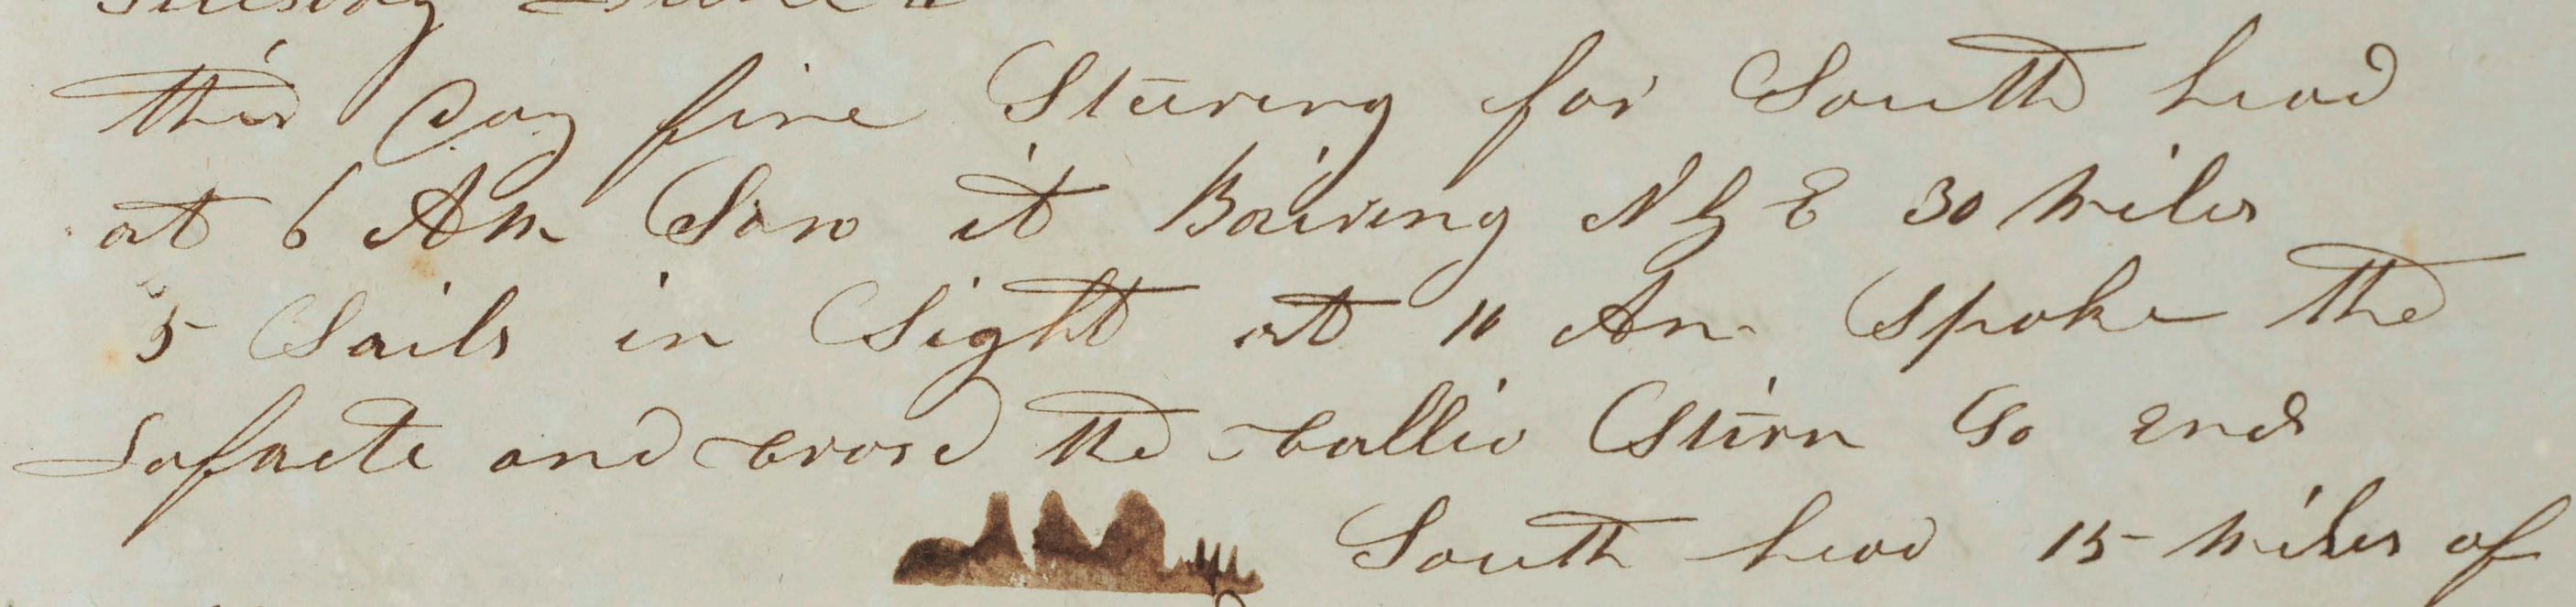 this Day fine Steering for South head
at 6 Am Saw it Bairing N b E 30 Miles
5 Sails in Sight at 11 Am Spoke the
Lafaete and Crosd the Stern So ends
South head 15 Miles of